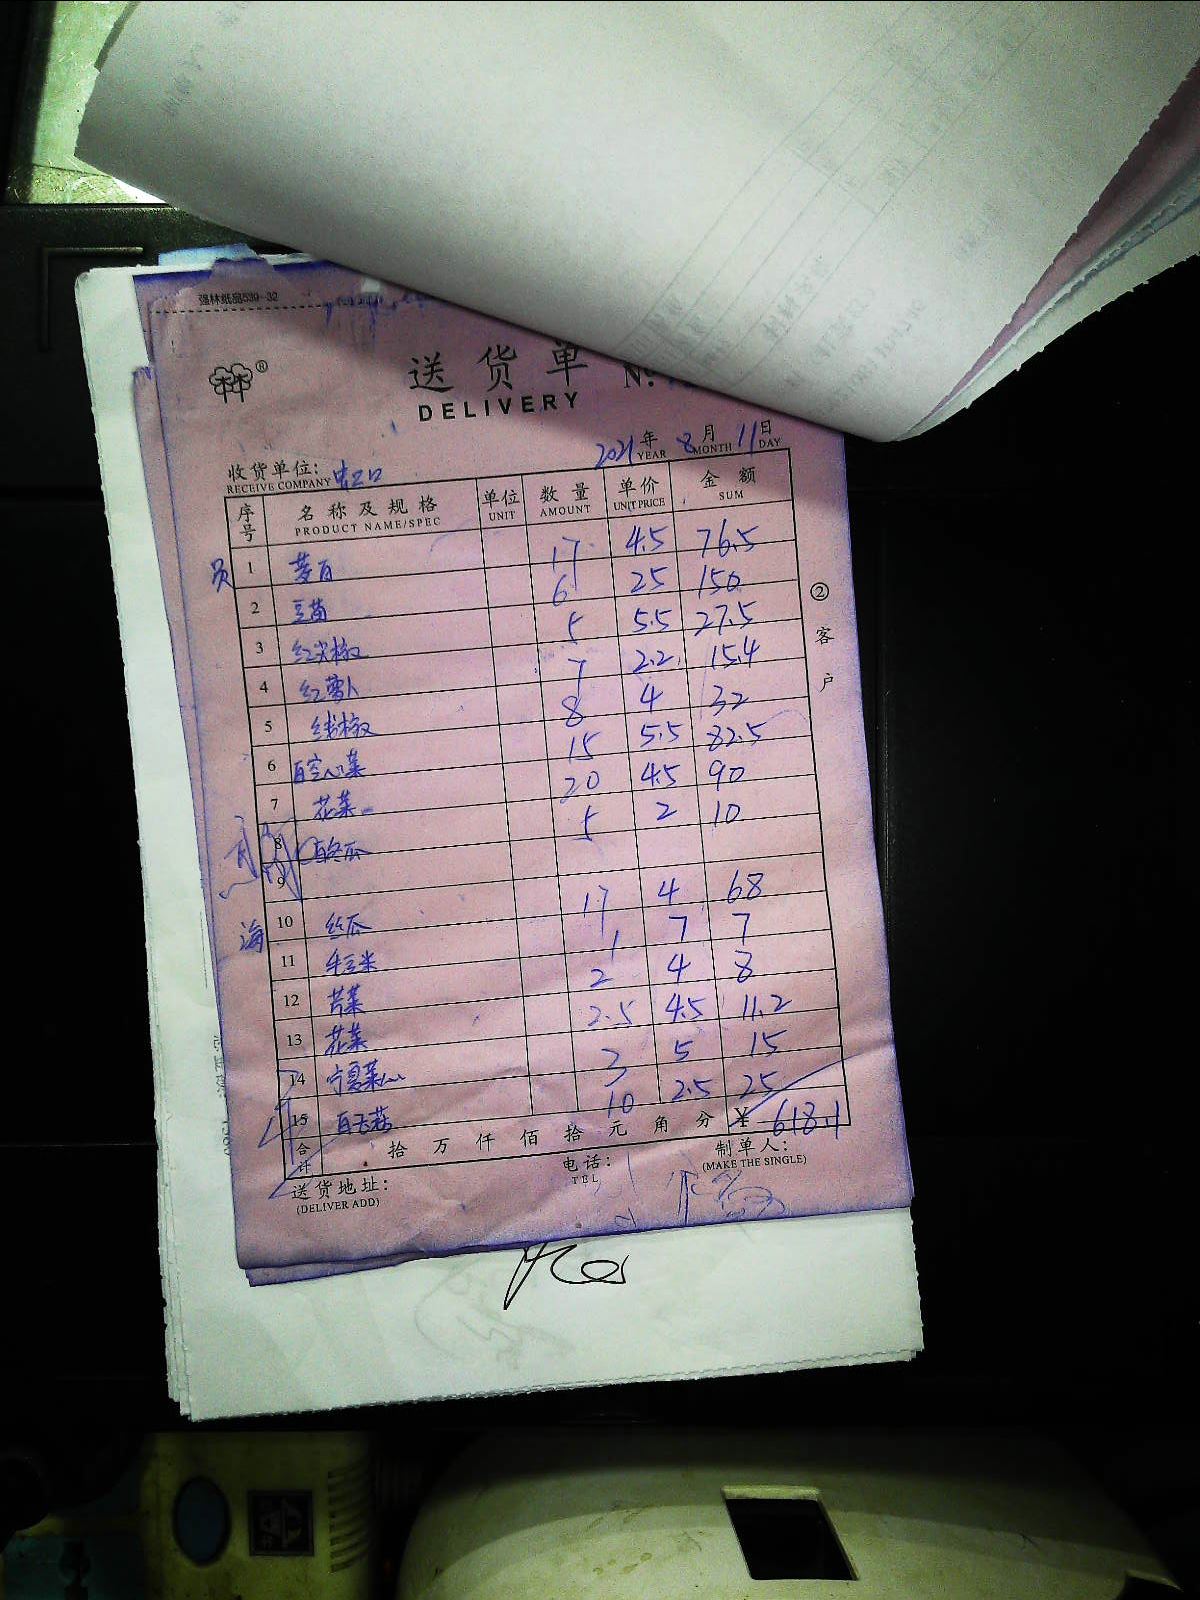 强林纸品539-32
®
送货单 №
DELIVERY
2021年 8月 11日
YEAR MONTH DAY
收货单位：虹口
RECEIVE COMPANY
序号 名称及规格 单位 数量 单价 金额
PRODUCT NAME/SPEC UNIT AMOUNT UNIT PRICE SUM
员 1 茭白 17 4.5 76.5
2 豆苗 6 25 150
3 红尖椒 5 5.5 27.5
4 红萝卜 7 2.2 15.4
5 线椒 8 4 32
6 白空心菜 15 5.5 82.5
7 花菜 20 4.5 90
8 白冬瓜 5 2 10
9
海 10 丝瓜 17 4 68
11 毛豆米 1 7 7
12 2 4 8
13 花菜 2.5 4.5 11.2
14 宁夏菜心 3 5 15
15 10 2.5 25
合计 拾 万 仟 佰 拾 元 角 分 ¥ 618.1
送货地址： 电话： 制单人：
(DELIVER ADD) TEL (MAKE THE SINGLE)
②客户